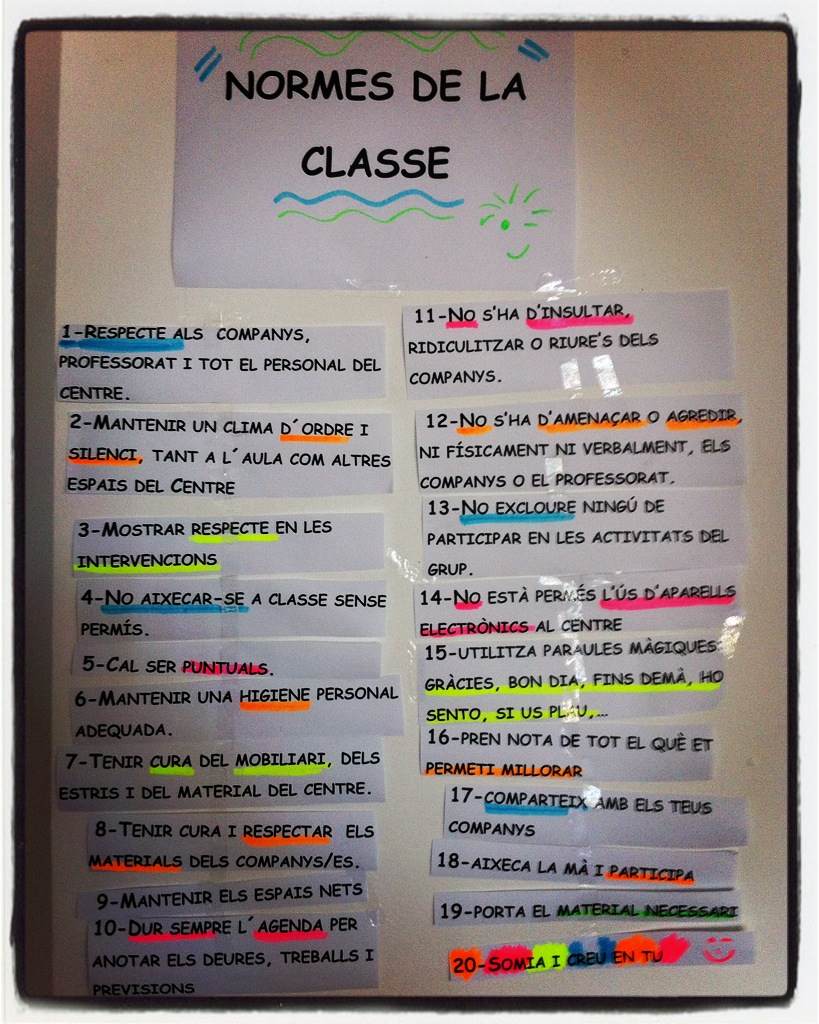 NORMES DE LA
CLASSE
1-RESPECTE ALS COMPANYS,
PROFESSORAT I TOT EL PERSONAL DEL
CENTRE.
2-MANTENIR UN CLIMA D´ORDRE I
SILENCI, TANT A L´AULA COM ALTRES
ESPAIS DEL CENTRE
3-MOSTRAR RESPECTE EN LES
INTERVENCIONS
4-NO AIXECAR-SE A CLASSE SENSE
PERMÍS.
5-CAL SER PUNTUALS.
6-MANTENIR UNA HIGIENE PERSONAL
ADEQUADA.
7-TENIR CURA DEL MOBILIARI, DELS
ESTRIS I DEL MATERIAL DEL CENTRE.
8-TENIR CURA I RESPECTAR ELS
MATERIALS DELS COMPANYS/ES.
9-MANTENIR ELS ESPAIS NETS
10-DUR SEMPRE L´AGENDA PER
ANOTAR ELS DEURES, TREBALLS I
PREVISIONS
11-NO S'HA D'INSULTAR,
RIDICULITZAR O RIURE'S DELS
COMPANYS.
12-NO S'HA D'AMENAÇAR O AGREDIR,
NI FÍSICAMENT NI VERBALMENT, ELS
COMPANYS O EL PROFESSORAT.
13-NO EXCLOURE NINGÚ DE
PARTICIPAR EN LES ACTIVITATS DEL
GRUP.
14-NO ESTÀ PERMÉS L'ÚS D'APARELLS
ELECTRÒNICS AL CENTRE
15-UTILITZA PARAULES MÀGIQUES:
GRÀCIES, BON DIA, FINS DEMÀ, HO
SENTO, SI US PLAU,...
16-PREN NOTA DE TOT EL QUÈ ET
PERMETI MILLORAR
17-COMPARTEIX AMB ELS TEUS
COMPANYS
18-AIXECA LA MÀ I PARTICIPA
19-PORTA EL MATERIAL NECESSARI
20-SOMIA I CREU EN TU